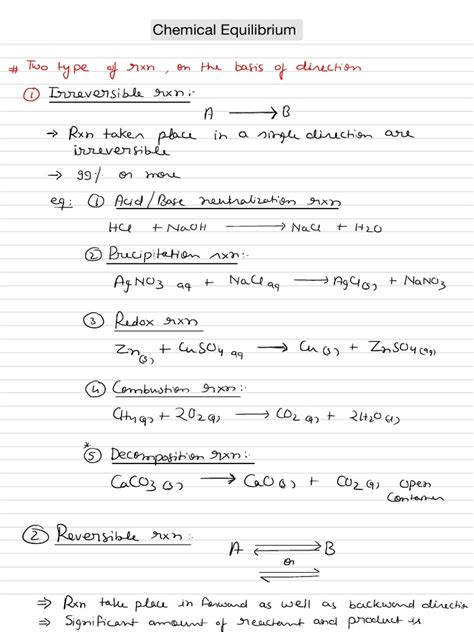 Chemical Equilibrium
# Two type of rxn, on the basis of direction
① Irreversible rxn:-
A ⟶ B
→ Rxn taken place in a single direction are
irreversible
→ 99% or more
eg: ① Acid/Base neutralization rxn
HCl + NaOH ⟶ NaCl + H2O
② Precipitation rxn:-
AgNO3 aq + NaCl aq ⟶ AgCl(s) + NaNO3
③ Redox rxn
Zn(s) + CuSO4 aq ⟶ Cu(s) + ZnSO4(aq)
④ Combustion rxn:-
CH4(g) + 2O2(g) ⟶ CO2(g) + 2H2O(l)
*⑤ Decomposition rxn:-
CaCO3(s) ⟶ CaO(s) + CO2(g) open
Container
② Reversible rxn:-
A ⇌ B
or
⇌
⇒ Rxn take place in forward as well as backward direction
⇒ Significant amount of reactant and product is